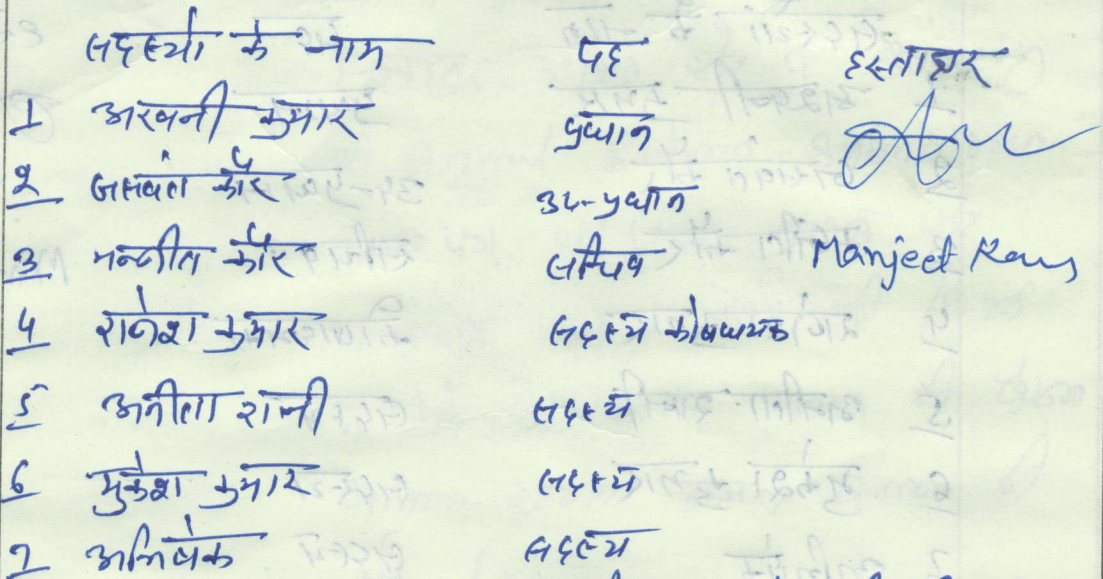 सदस्यो के नाम पद हस्ताक्षर
1 अश्वनी कुमार प्रधान
2 जसवंत कौर उप-प्रधान
3 मन्जीत कौर सचिव Manjeet Kaur
4 राजेश कुमार सदस्य कोषाध्यक्ष
5 अनीता रानी सदस्य
6 मुकेश कुमार सदस्य
7 अभिषेक सदस्य